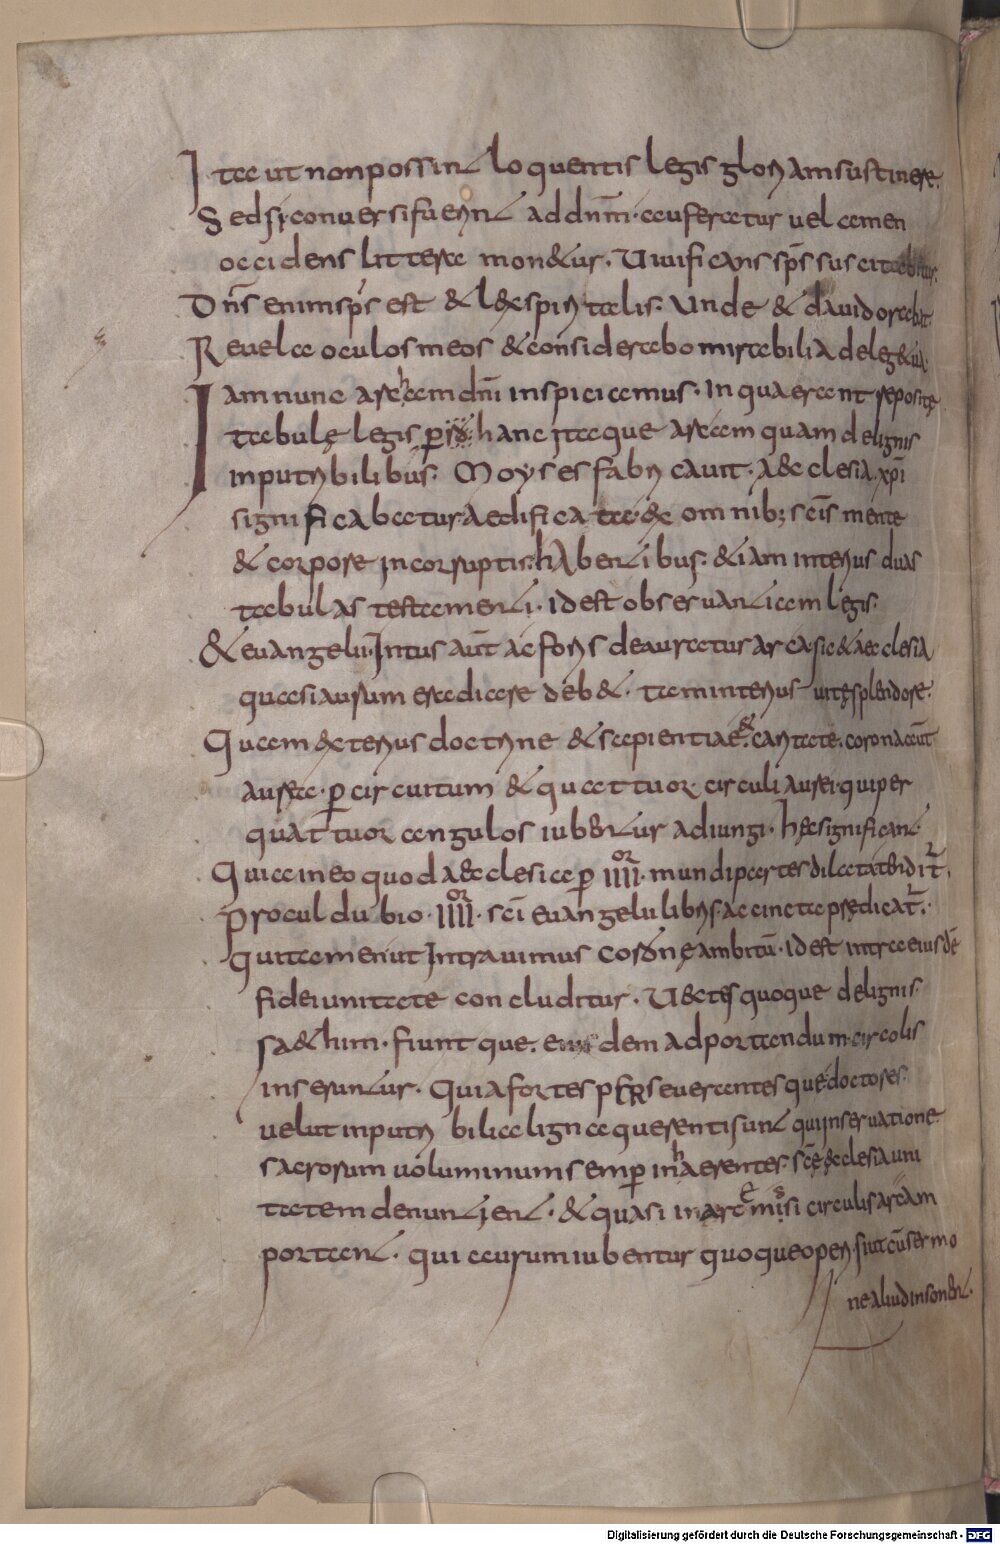 Ita ut non possint loquentis legis gloriam sustinere.
Sed si conuersi fuerint ad dnm̄. auferatur uelamen
occidens littera mondetur. Uiuificans sp̄s suscitabitur.
Dn̄s enim sp̄s est & lex spiritalis. Unde & dauid orabat.
Reuela oculos meos & considerabo mirabilia de lege tua.
Iam nunc archam dn̄i inspiciamus. In qua erant reposite
tabulę legis p hanc itaque arcam quam de lignis
inputribilibus. Moyses fabricauit. Aecclesia xp̄i
significabatur. aedificata ex omnib; sc̄is mente
& corpore incorruptis. habentibus. etiam interius duas
tabulas testamenti. id est obseruantiam legis.
& euangelii. Intus aut̄ ac foris deauratur arca. sic & aecclesia
quasi aurum eradicere debet. tam interius uitę splendore.
Quam exterius doctrine & sapientiae & caritate. corona aut̄
aurea. p circuitum & quattuor circuli aurei. qui per
quattuor angulos iubentur adiungi. haec significant
Quia in eo quod aecclesia p IIII or. mundi partes dilatata tendit̄.
Procul dubio. IIII or. sc̄i euangelii libris. accincta prędicat̄.
quitamen ut Intrauimus coronę ambitū. id est intra eiusdē
fidei unitate concluditur. Uectes quoque de lignis
sæthim. fiunt que. eisdem ad portandum. circolis
inseruntur. Quia fortes pERseuerantes quę doctores.
uelut inputribilia ligna querenti sunt qui inseruatione
sacrorum uoluminum semp inhaerentes. sc̄ę ęclesia uni
tatem denuntient. & quasi in missi circulis arcam
portant. qui aurum iubentur quoque operiri. sut cū sermo
ne aliud insonent.
Digitalisierung gefördert durch die Deutsche Forschungsgemeinschaft - DFG